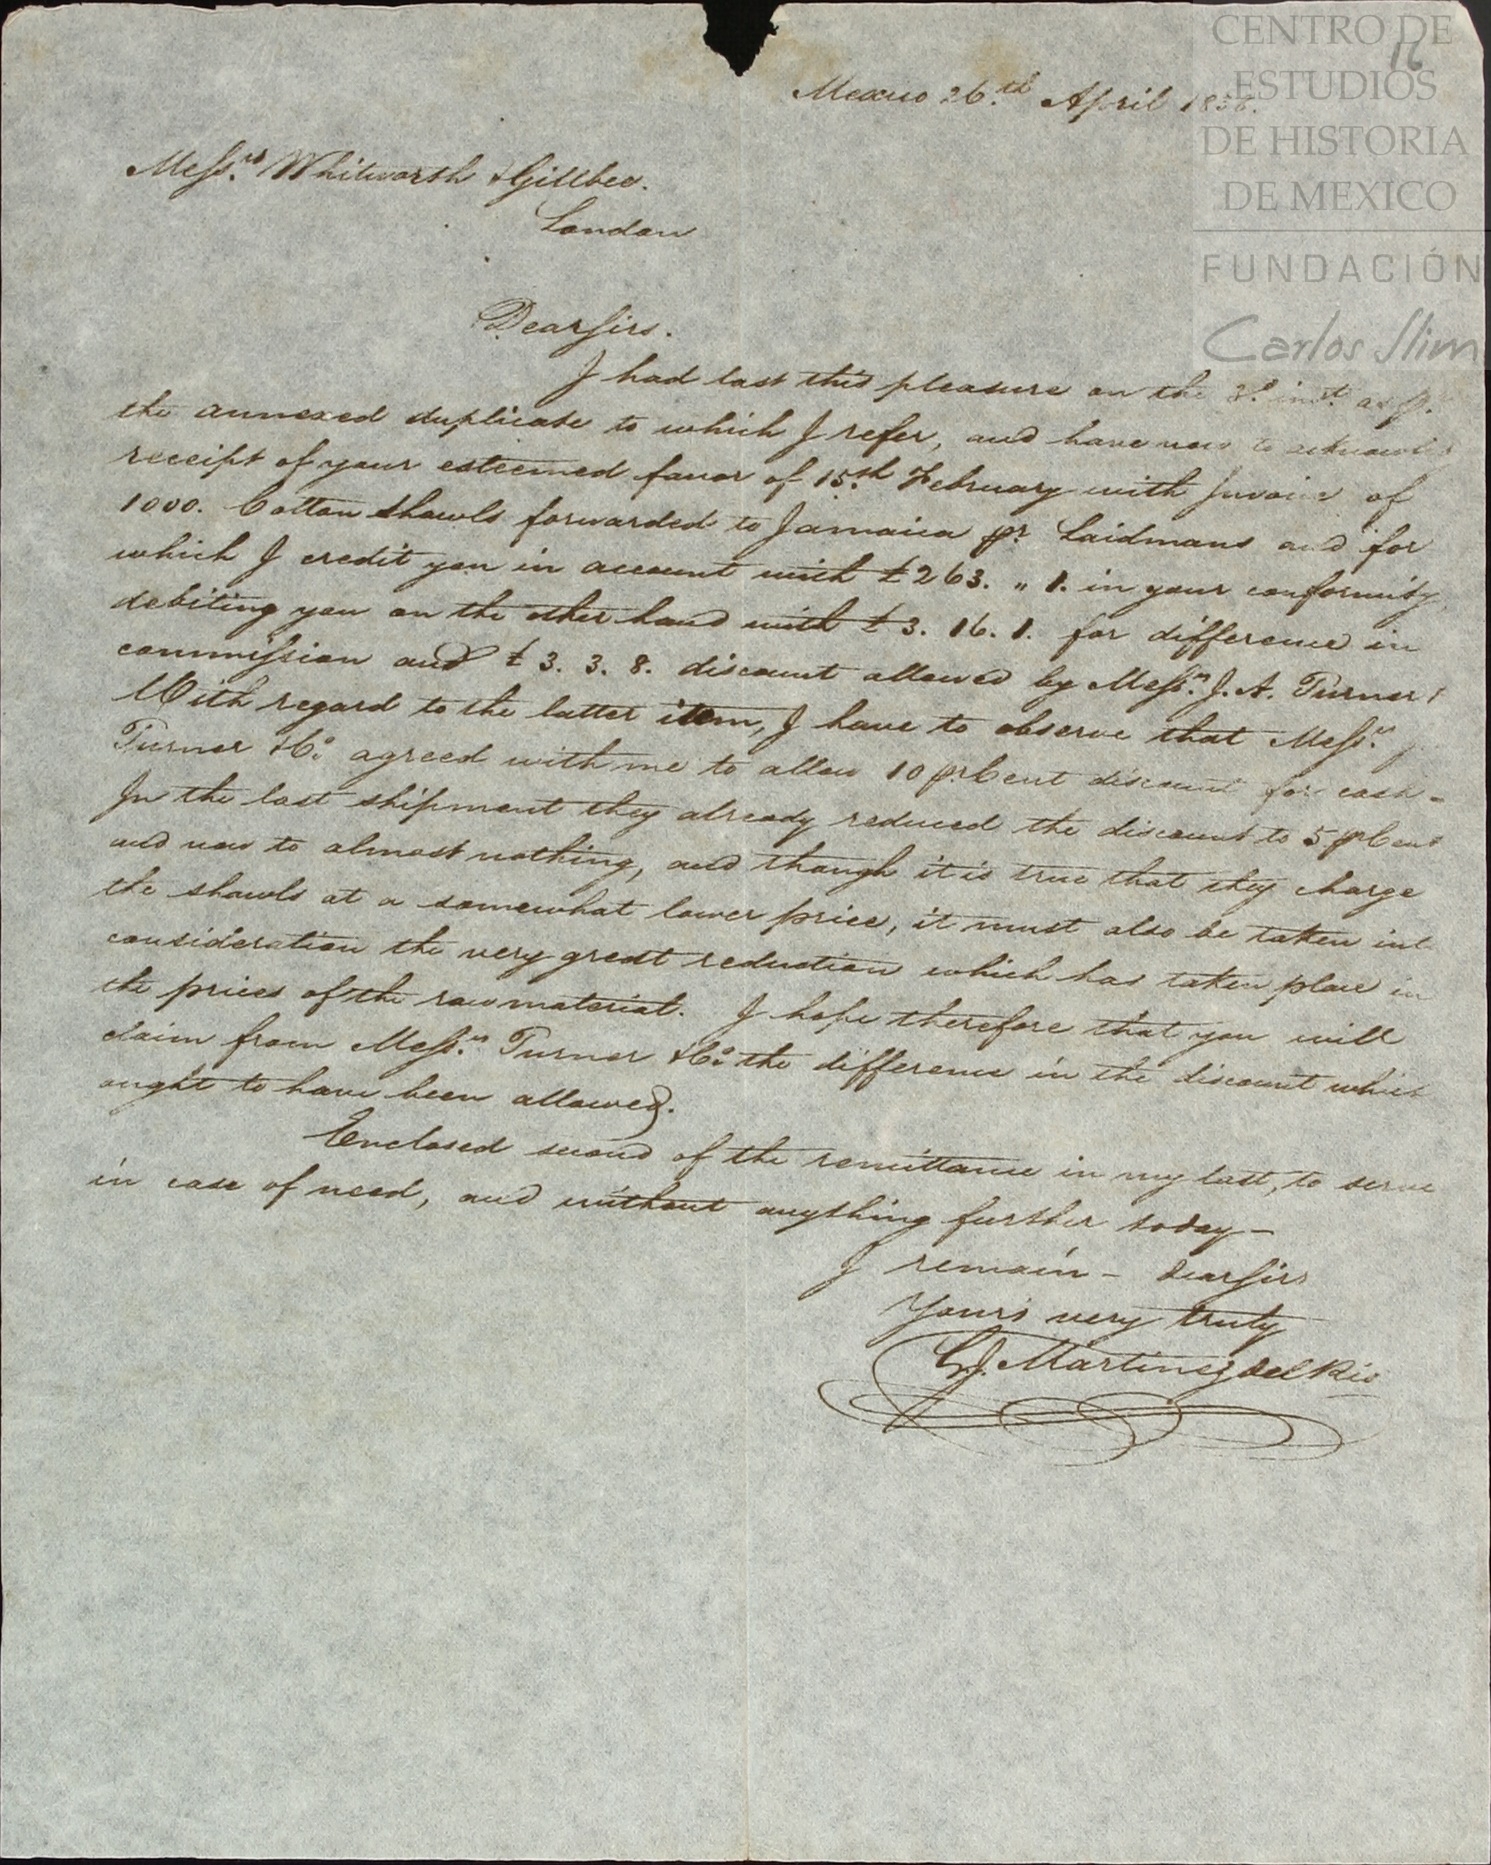 CENTRO DE
ESTUDIOS
DE HISTORIA
DE MEXICO
FUNDACIÓN
Carlos Slim
16
Mexico 26.th April
Mess.rs Whitworth & Gillbee.
London
Dear Sirs.
I had last this pleasure on the inst. as p.
the annexed duplicate to which I refer, and have now to acknowledge
receipt of your esteemed favor of 15.th February with Invoice of
1000. Cotton Shawls forwarded to Jamaica pr. Laidmans and for
which I credit you in account with £263. " 1. in your conformity,
debiting you on the other hand with £3. 16. 1. for difference in
commission and £3. 3. 8. discount allowed by Mess.rs J. A. Turner
With regard to the latter item, I have to observe that Mess.rs
Turner & Co. agreed with me to allow 10 pr Cent discount for cash-
In the last shipment they already reduced the discount to 5 p Cent
and now to almost nothing, and though it is true that they charge
the shawls at a somewhat lower price, it must also be taken into
consideration the very great reduction which has taken place in
the prices of the raw material. I hope therefore that you will
claim from Mess.rs Turner & Co. the difference in the discount which
ought to have been allowed.
Enclosed second of the remittance in my last, to serve
in case of need, and without anything further today-
I remain - Dear Sirs
Yours very truly
G. J. Martinez del Rio